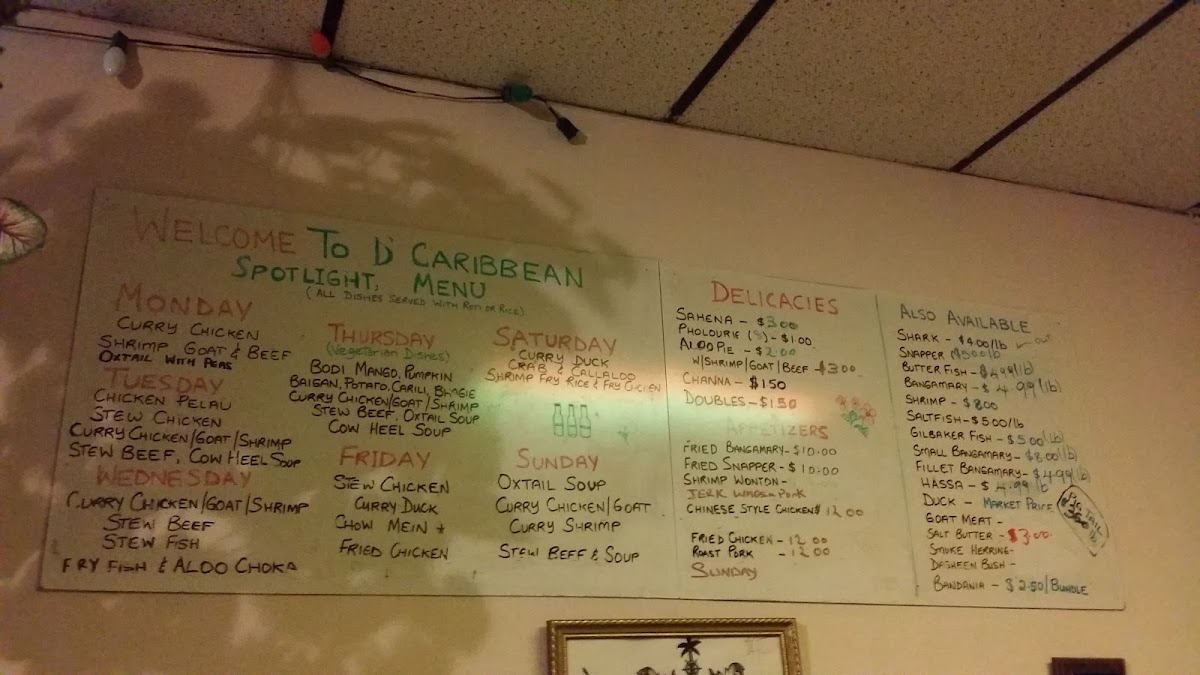 WELCOME TO D' CARIBBEAN
SPOTLIGHT, MENU
(ALL DISHES SERVED WITH ROTI OR RICE)
MONDAY
CURRY CHICKEN
SHRIMP GOAT & BEEF
OXTAIL WITH PEAS
TUESDAY
CHICKEN PELAU
STEW CHICKEN
CURRY CHICKEN/GOAT/SHRIMP
STEW BEEF, COW HEEL SOUP
WEDNESDAY
CURRY CHICKEN/GOAT/SHRIMP
STEW BEEF
STEW FISH
FRY FISH & ALOO CHOKA
THURSDAY
(Vegetarian Dishes)
BODI MANGO, PUMPKIN
BAIGAN, POTATO, CARILI, BHAGIE
CURRY CHICKEN/GOAT/SHRIMP
STEW BEEF, OXTAIL SOUP
COW HEEL SOUP
FRIDAY
STEW CHICKEN
CURRY DUCK
CHOW MEIN *
FRIED CHICKEN
SATURDAY
CURRY DUCK
CRAB & CALLALOO
SHRIMP FRY RICE & FRY CHICKEN
SUNDAY
OXTAIL SOUP
CURRY CHICKEN/GOAT
CURRY SHRIMP
STEW BEEF & SOUP
DELICACIES
SAHENA - $3.00
PHOLOURIE (5) - $1.00
ALOO PIE - $2.00
W/SHRIMP/GOAT/BEEF - $3.00
CHANNA - $150
DOUBLES - $150
APPETIZERS
FRIED BANGAMARY - $10.00
FRIED SNAPPER - $10.00
SHRIMP WONTON -
JERK PORK
CHINESE STYLE CHICKEN $12.00
FRIED CHICKEN - 12.00
ROAST PORK - 12.00
SUNDAY
ALSO AVAILABLE
SHARK - $400/lb out
SNAPPER $500lb
BUTTER FISH - $499/lb)
BANGAMARY - $4.99(lb)
SHRIMP - $800
SALTFISH - $500/lb
GILBAKER FISH - $500(lb)
SMALL BANGAMARY - $8.00/lb)
FILLET BANGAMARY - $499/lb
HASSA - $4.99/lb
DUCK - MARKET PRICE
GOAT MEAT -
SALT BUTTER - $3.00
SMOKE HERRING -
DASHEEN BUSH -
BANDANIA - $2.50/BUNDLE
PIG TAIL